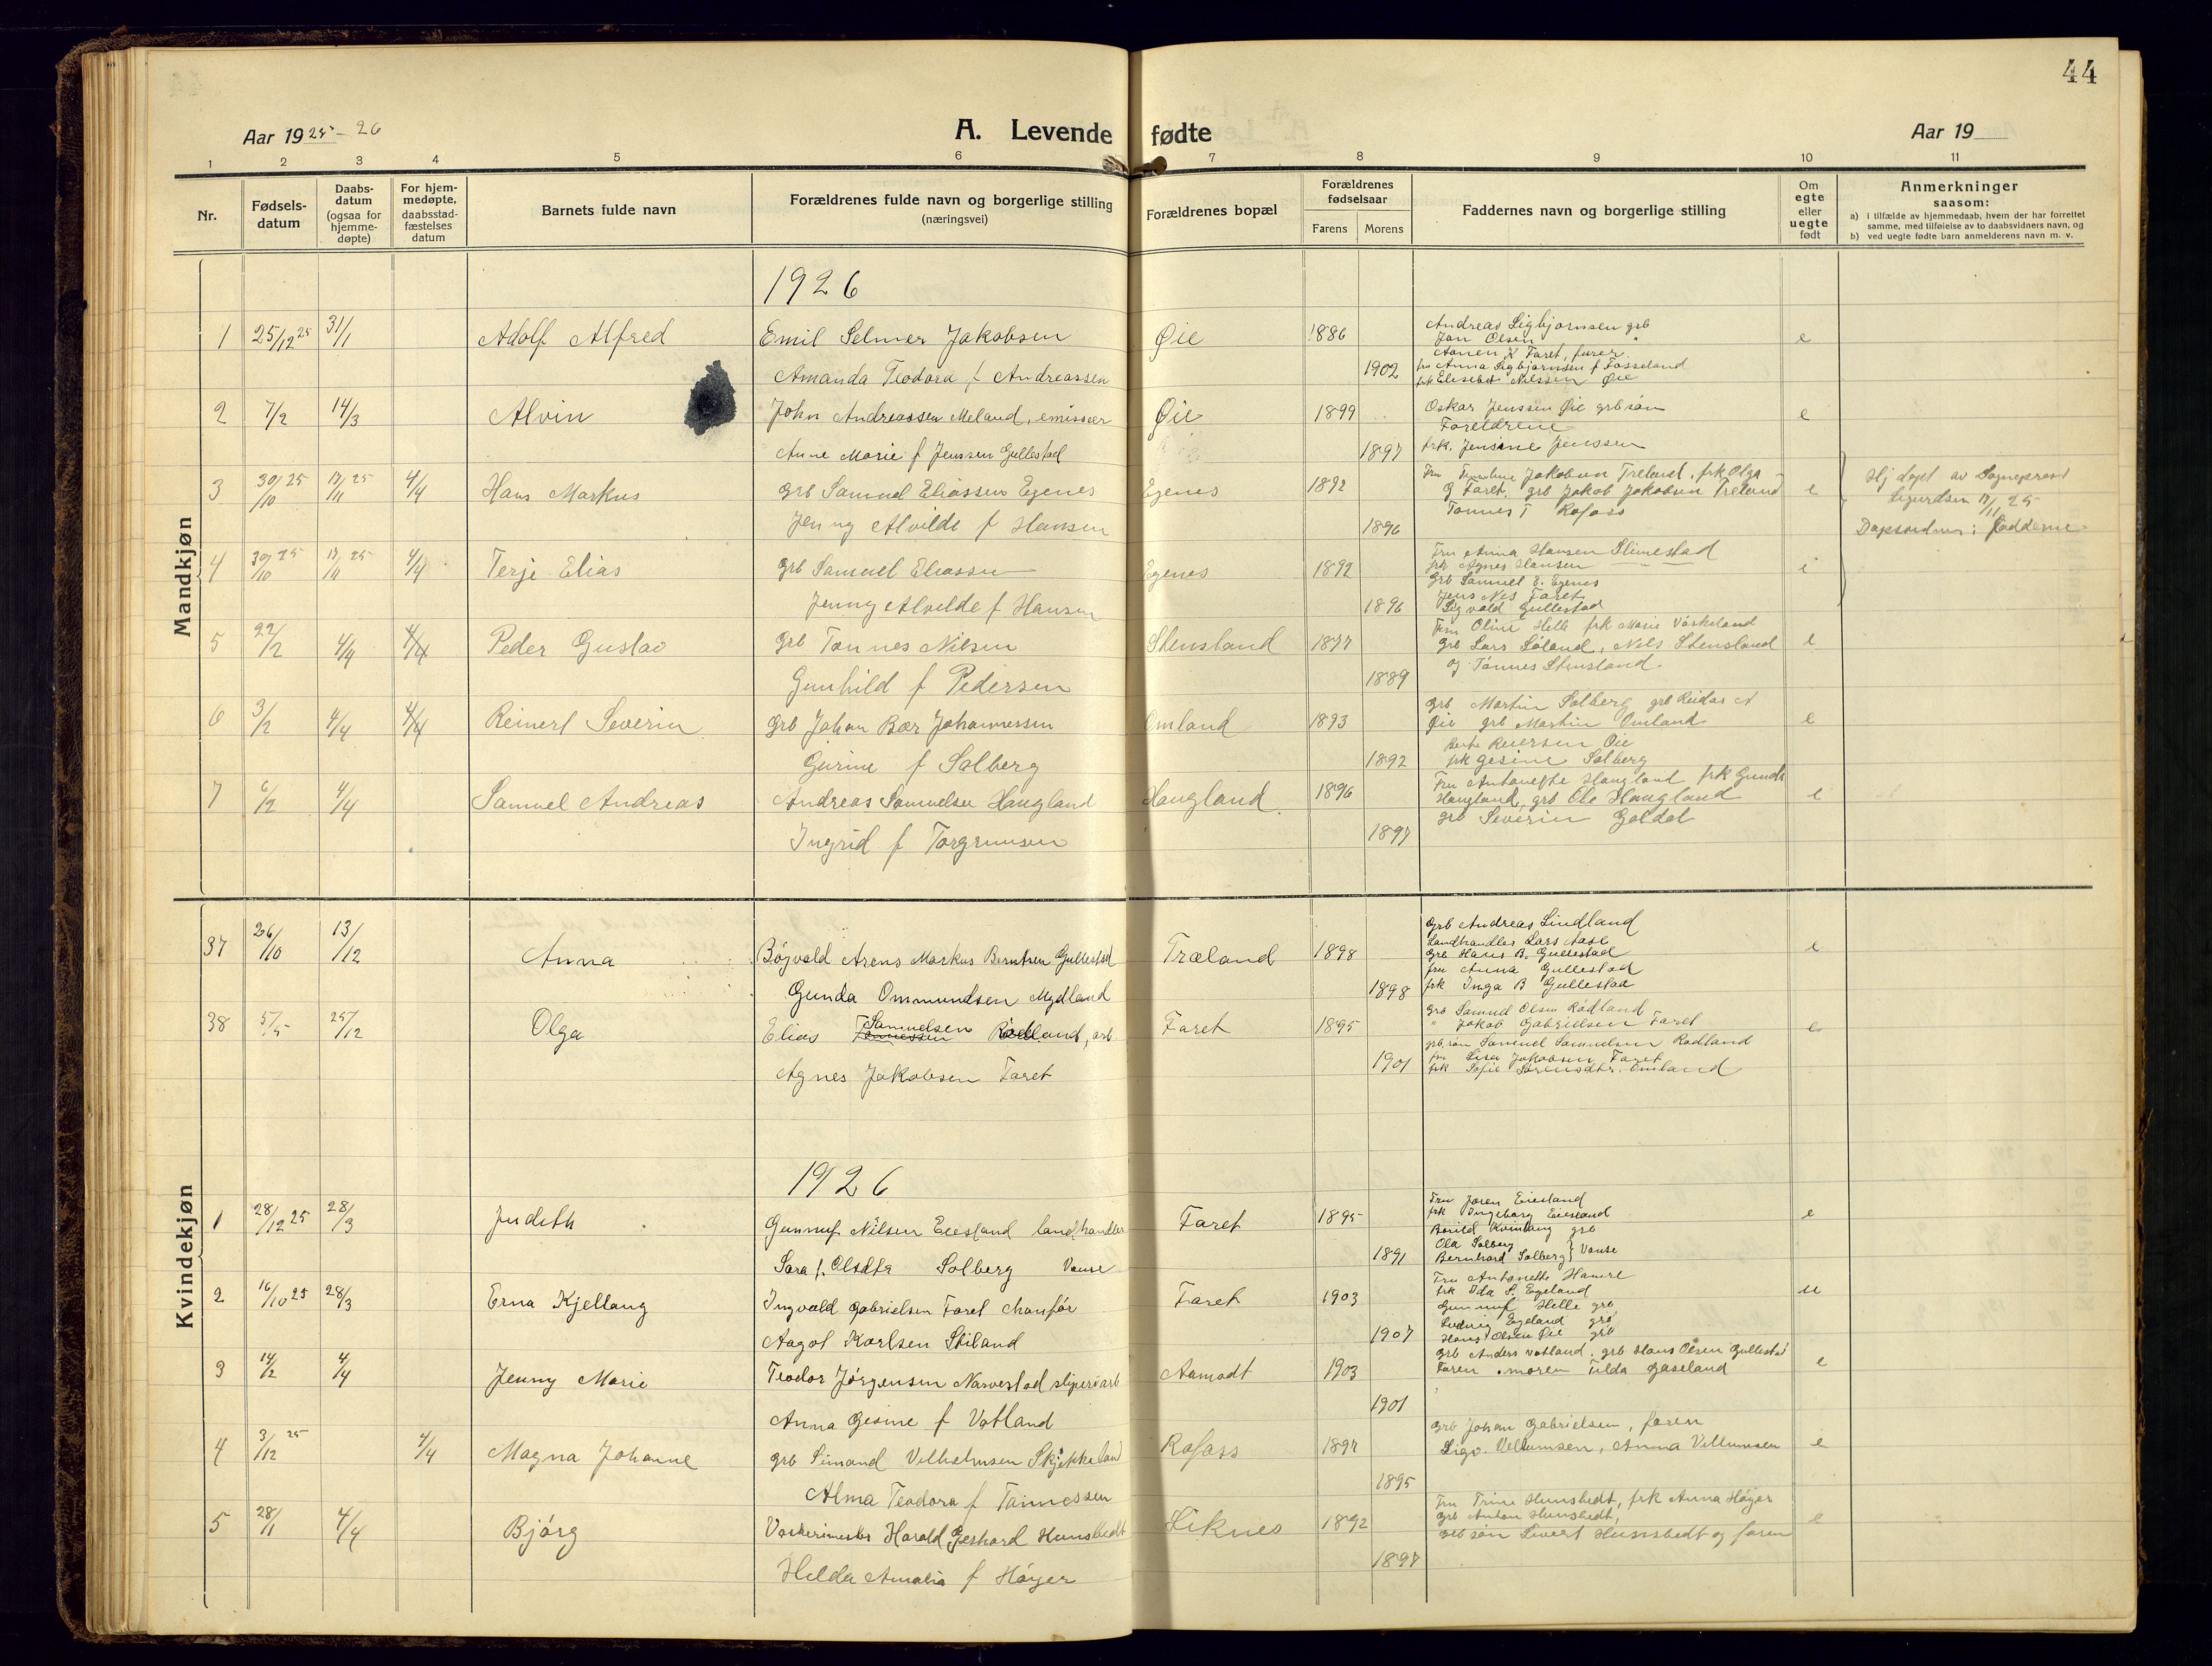 44
Aar 1925-26
A. Levende fødte
Aar 19
1 2 3 4 5 6 7 8 9 10 11
Nr.
Fødsels-
datum
Daabs-
datum
(ogsaa for
hjemme-
døpte)
For hjem-
medøpte,
daabsstad-
fæstelses
datum
Barnets fulde navn
Forældrenes fulde navn og borgerlige stilling
(næringsvei)
Forældrenes bopæl
Forældrenes
fødselsaar
Farens Morens
Faddernes navn og borgerlige stilling
Om
egte
eller
uegte
født
Anmerkninger
saasom:
a) i tilfælde av hjemmedaab, hvem der har forrettet
samme, med tilføielse av to daabsvidners navn, og
b) ved uegte fødte barn anmelderens navn m. v.
Mandkjøn
1926
1 25/12 25 31/1 Adolf Alfred Emil Selmer Jakobsen Øie 1886 e
Amanda Teodora f Andreassen 1902
Andreas Sigbjørnsen grb
Jan Olsen
fru Anna Sigbjørnsen f Fosseland
frk Elisebet Nilssen Øie
2 7/2 14/3 Alvin John Andreassen Meland, emissær Øie 1899 e
Anne Marie f Jenssen Gullestad 1897
Oskar Jenssen Øie grb søn
Foreldrene
frk. Jensine Jenssen
3 30/10 25 17/11 25 4/4 Hans Markus grb Samuel Eliassen Egenes Egenes 1892 e
Jenny Alvilde f Hansen 1896
Jakobsen Treland, frk Olga
G Faret, grb Jakob Jakobsen Treland
Tønnes T Rafoss
Hj døpt av Sogneprest
Sigurdsen 17/11 25
Faddderne
4 30/10 25 17/11 25 4/4 Terje Elias grb Samuel Eliassen Egenes 1892
Jenny Alvilde f Hansen 1896
Fru Anna Hansen Slimestad
frk Agnes Hansen
Grb Samuel E. Egenes
Jens Nes Faret
Sigvald Gullestad
5 22/2 4/4 4/4 Peder Gustav grb Tønnes Nilsen Stensland 1877 e
Gunhild f Pedersen 1889
Fru Oline Helle frk Marie Våskeland
grb Lars Søland, Nils Stensland
og Tønnes Stensland.
6 3/2 4/4 4/4 Reinert Severin grb Johan Bær Johannessen Omland 1893 e
Gurine f Solberg 1892
grb Martin Solberg grb Reidar A
Øie grb Martin Omland
Reiersen Øie
frk Gesine Solberg
7 6/2 4/4 Samuel Andreas Andreas Samuelsen Haugland Haugland 1896 e
Ingrid f Torgrimsen 1897
Fru Antonette Haugland frk Gunda
Haugland, grb Ole Haugland
grb Severin Galdal
Kvindekjøn
37 26/10 13/12 Anna Bøjvald Arens Markus Berntsen Gullestad Træland 1898 e
Gunda Ommundsen Mydland 1898
Grb Andreas Lindland
Landhandler Lars Aase
Grb Hans B. Gullestad
fru Anna Gullestad
frk Inga B Gullestad
38 5/5 25/12 Olga Elias Samuelsen Rødland, arb Faret 1895 e
Agnes Jakobsen Faret 1901
grb Samuel Olsen Rødland
" Jakob Gabrielsen Faret
grb.søn Samuel Samuelsen Rødland
fru Lisa Jakobsen Faret
frk Sofie Sørensdtr. Omland
1926
1 28/12 25 28/3 Judith Gunnuf Nilsen Eiesland landhandler Faret 1895 e
Sara f. Olsdtr Solberg Vanse 1891
Fru Joren Eiesland
frk Ingeborg Eiesland
Kvinlaug grb
Ola Solberg
Bernhard Solberg } Vanse
2 16/10 25 28/3 Erna Kjellaug Ingvald Gabrielsen Faret chaufør Faret 1903 u
Aagot Karlsen Stiland 1907
Fru Antonette Hamre
frk Ida S. Egeland
Gunnuf Helle grb
Ludvig Egeland grb
Hans Olsen Øie grb
3 14/2 4/4 Jenny Marie Teodor Jørgensen Narvestad sliperiarb Aamodt 1903 e
Anna Gesine f Vatland 1901
grb Anders Vatland. grb Hans Olsen Gullestad
Faren . moren Tilda Gaseland
4 3/12 25 4/4 Magna Johanne grb Simond Vilhelmsen Skjekkeland Rafoss 1897 e
Alma Teodora f Tønnessen 1895
grb Johan Gabrielsen, faren
Sigv. Vellumsen, Anna Vellumsen
5 28/1 4/4 Bjørg Harald Gerhard Hunsbedt Liknes 1892 e
Hilda Amalia f Høyer 1897
Fru Trine Hunsbedt, frk Anna Høyer
grb Anton Hunsbedt,
grb søn Sivert Hunsbedt og faren